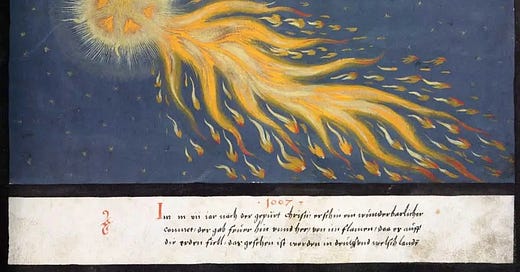 · 1007 ·
Im m vii iar nach der gepurt Christi erschin ein wunderbarlicher
comnet, der gab feuor hin vnnd her, wie ein flamen, das er auff
die erden fiell, das gesehen ist worden in deutschen welsch landt